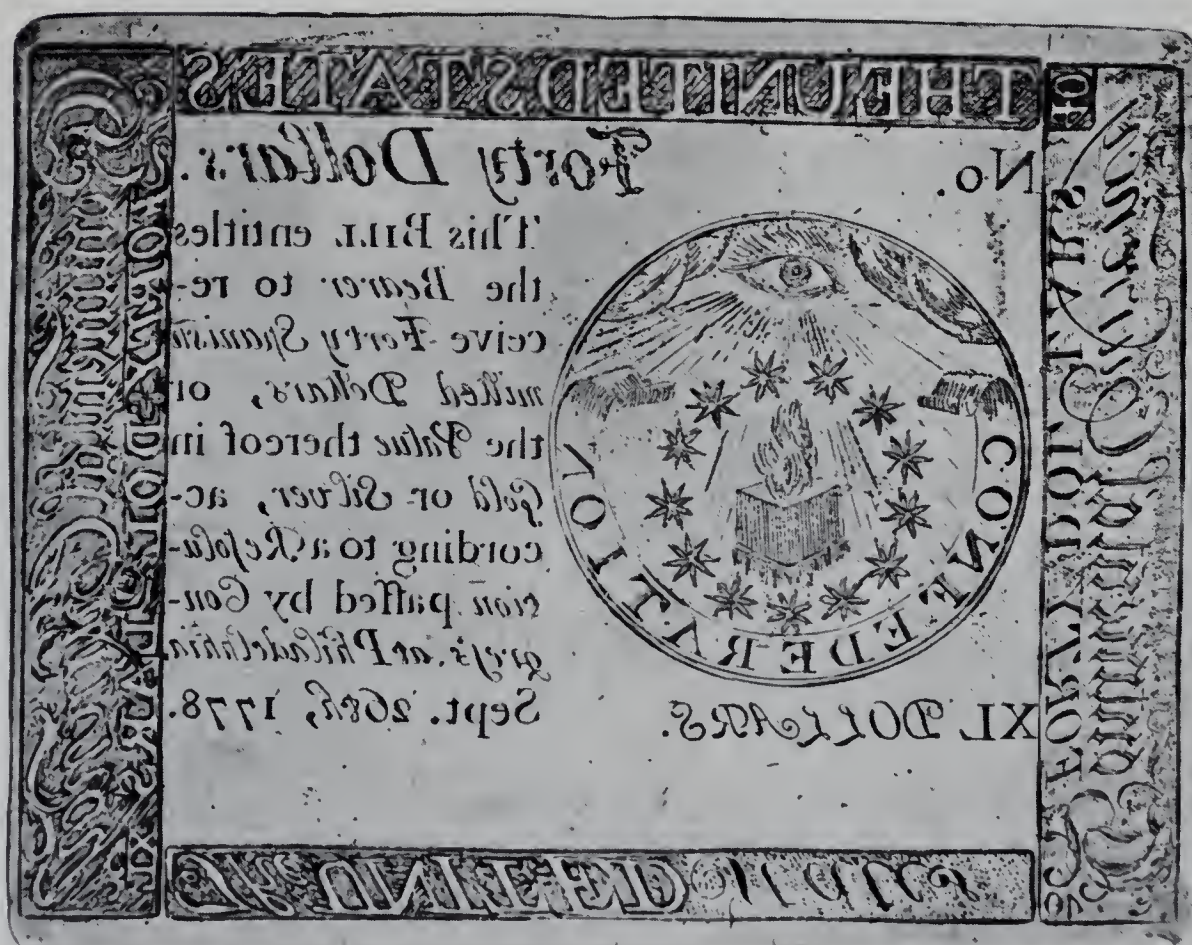 THE UNITED STATES
No.
Forty Dollars.
This BILL entitles
the Bearer to re-
ceive Forty Spanish
milled Dollars, or
the Value thereof in
Gold or Silver, ac-
cording to a Resolu-
tion passed by Con-
gress, at Philadelphia
Sept. 26th, 1778.
CONFEDERATION
XL DOLLARS.
FORTY DOLLARS